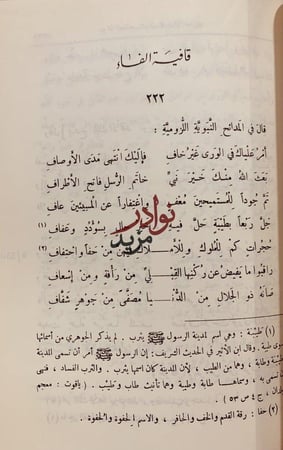 قافية الفاء
٢٢٢
قال في المدائح النبوية اللزومية :
أمر علياك في الورى غير خاف فإليك انتهى مدى الأوصاف
بعث الله منك خير نبي خاتم الرسل فاتح الأطراف
ثم جوداً للمستميحين معف واغتفاراً عن المسيئين عاف
جل ربعا بطيبة حل فيه بسؤدد وعفاف (١)
حجرات كم للملوك وللأ من حفا واحتفاف (٢)
راقبوا ما يفيض عن ركنها القبـ لي من رأفة ومن إسعاف
صانه ذو الجلال من الد يا مصفى من جوهر شفاف
نوادر
مزيد
(١) طيبة : وهي اسم لمدينة الرسول ﷺ يثرب . لم يذكر الجوهري من أسمائها
سوى طيبة . وقال ابن الأثير في الحديث الشريف : إن الرسول ﷺ أمر أن تسمى المدينة
طيبة وطابة ، وهما من الطيب ، لأن المدينة كان اسمها يثرب . والثرب الفساد ، فنهى
أن تسمى به ، وسماها طابة وطيبة وهما تأنيث طاب وطيب . ( ياقوت : معجم
، ج ٤ ص ٥٣ ) .
(٢) حفا : رقة القدم والخف والحافر ، والاسم الحفوة والحفوة .